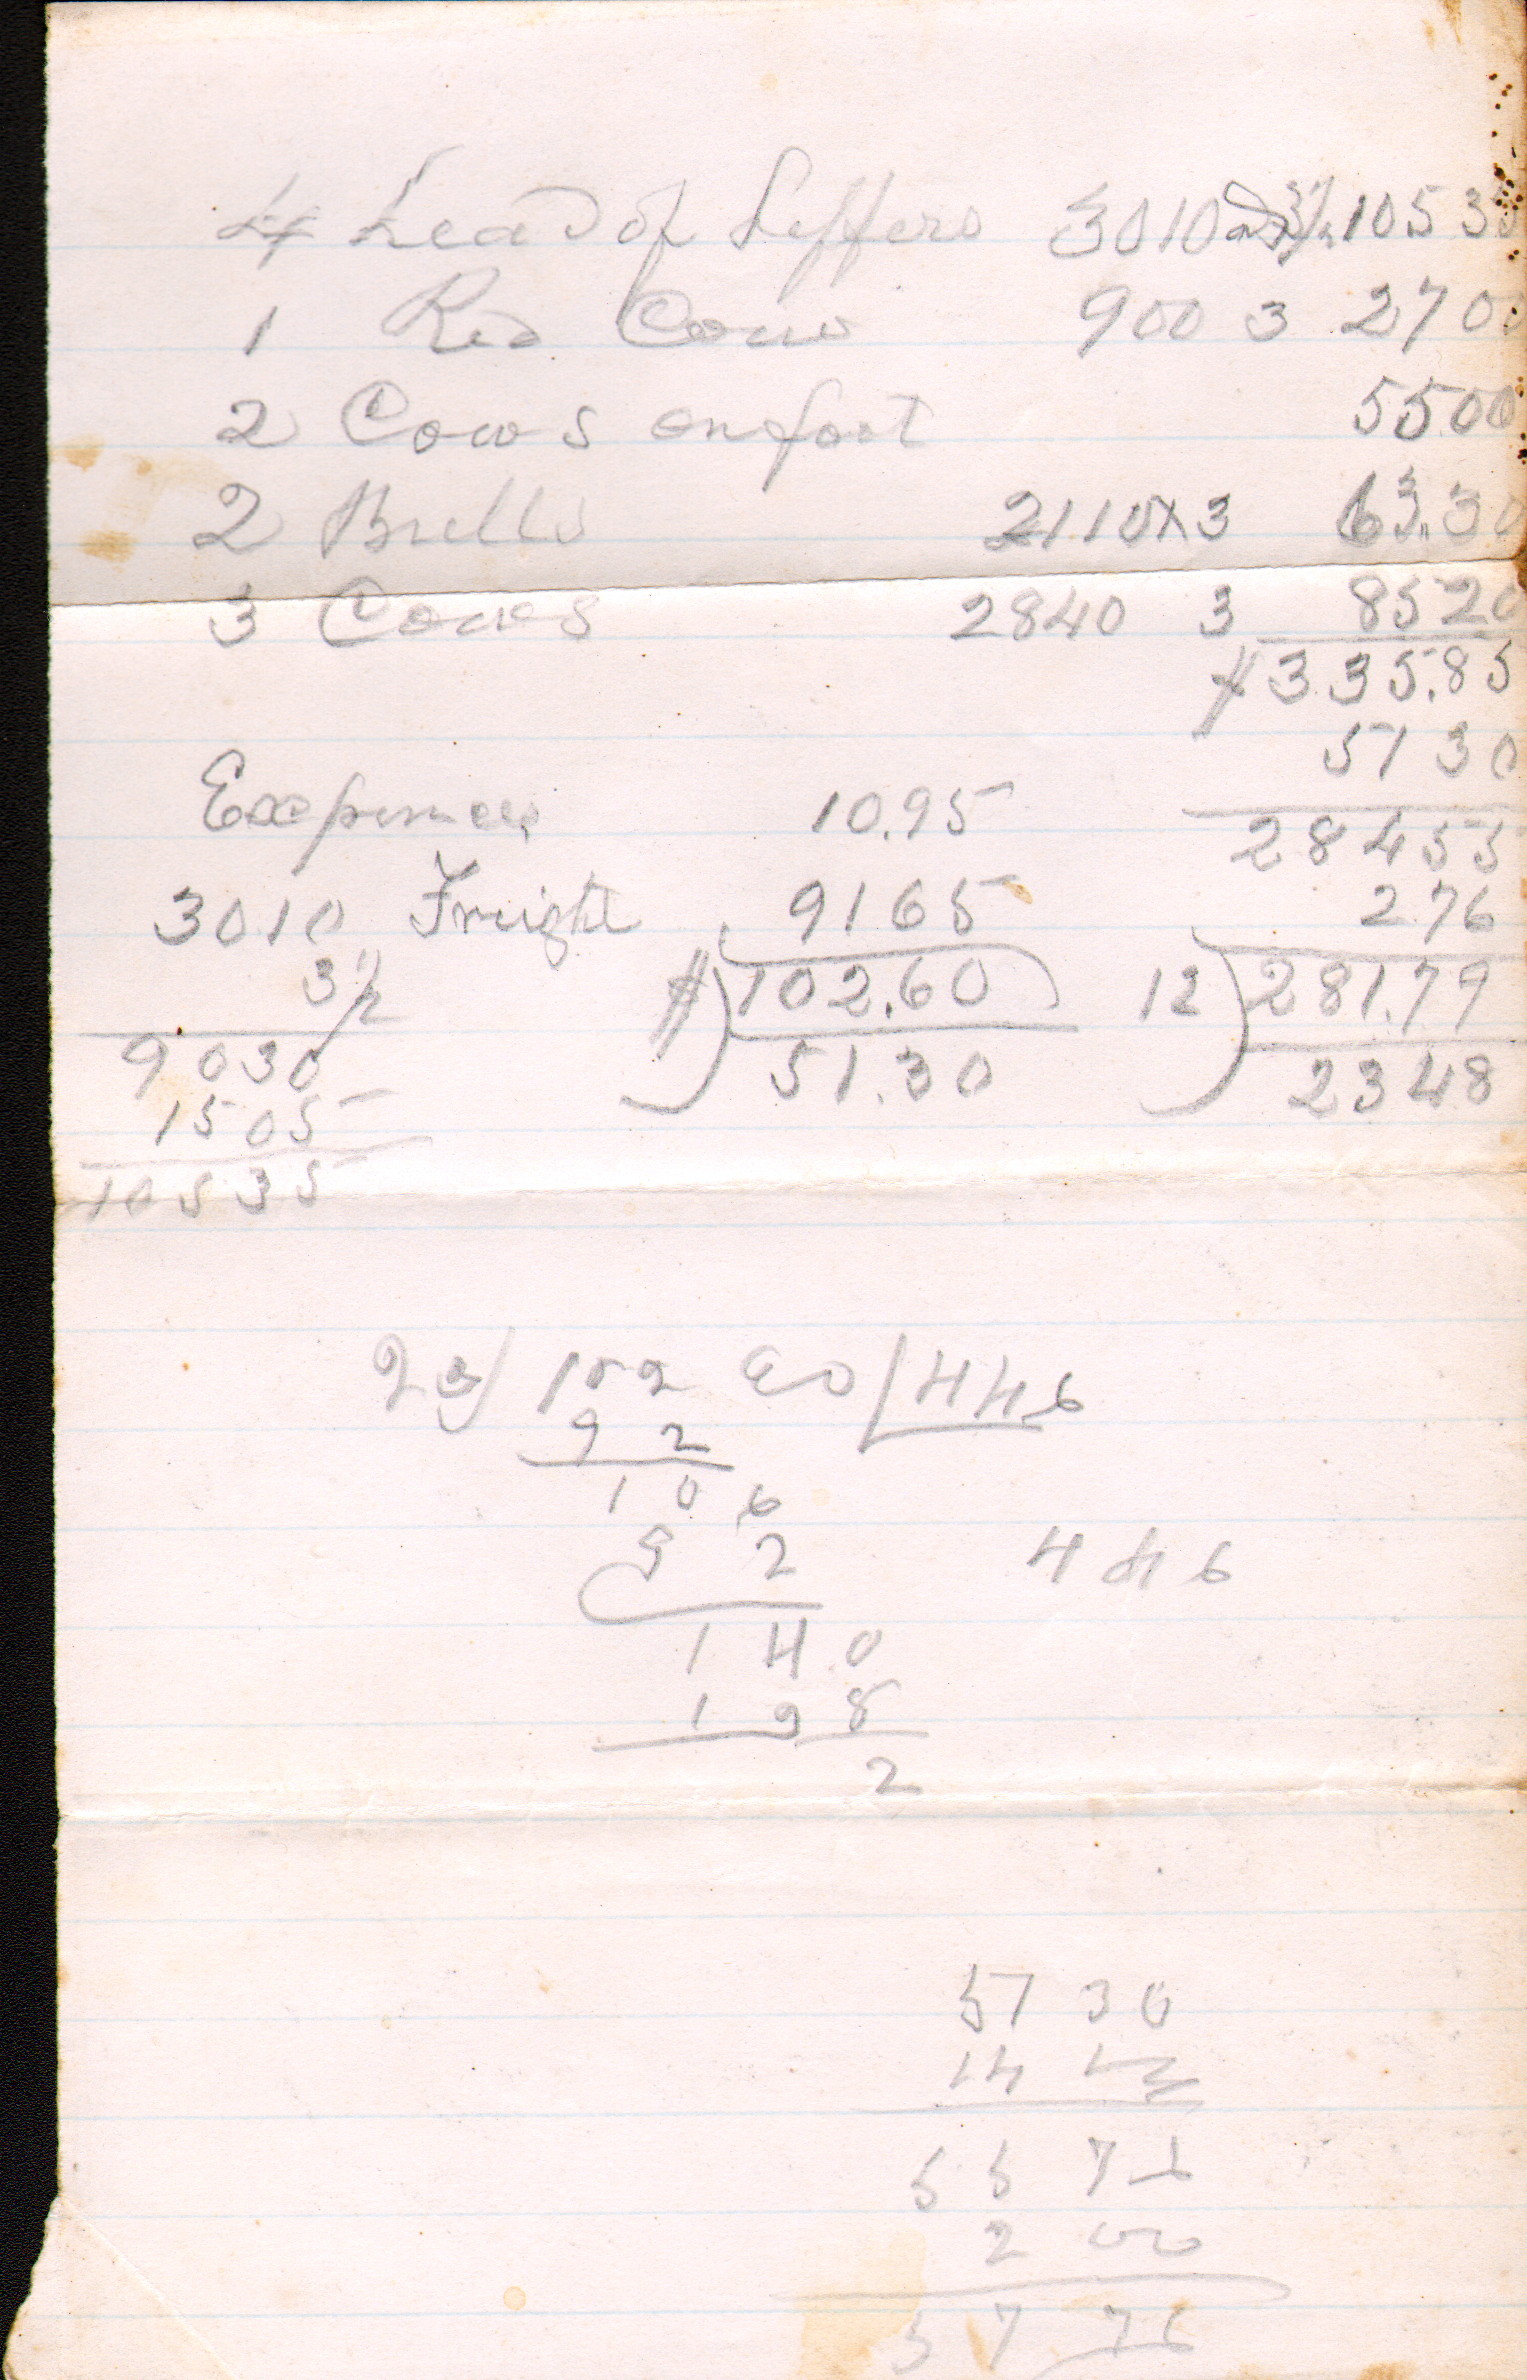 4 Head of Heffers 3010 3 1/2 10535
1 Red Cow 900 3 2700
2 Cows on foot 5500
2 Bulls 2110 x 3 63.30
3 Cows 2840 3 8520
335.85
5130
Expences 10.95 28455
3010 Freight 9165 2.76
3 1/2 102.60 12 281.79
9030 51.30 2348
1505
10535
23 102 60 446
92
106
92 446
140
138
2
51 30
4 46
55 76
2 00
57 76